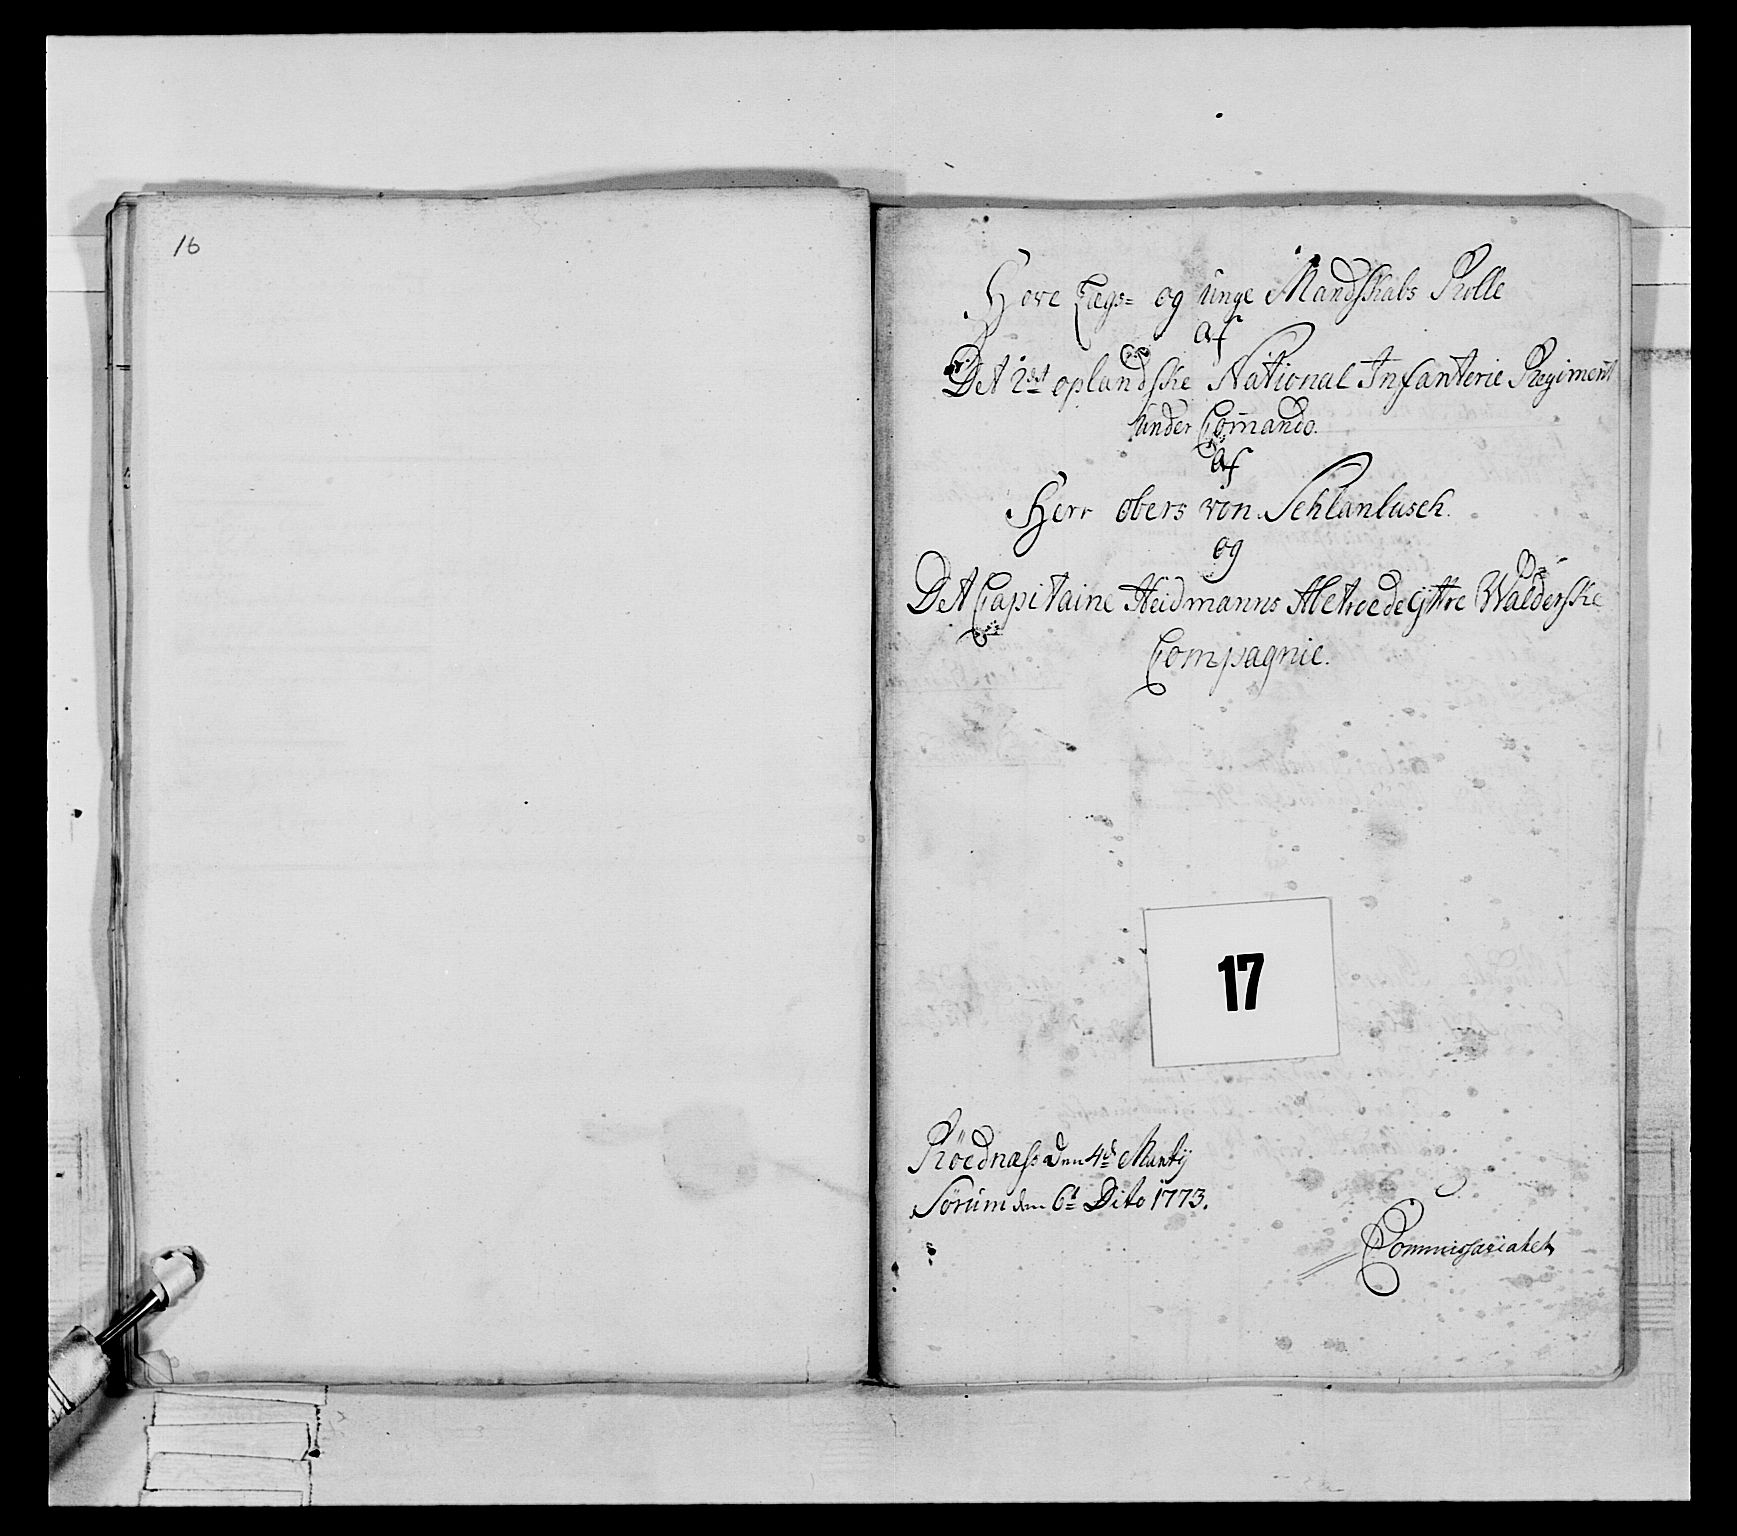 16
Hove Lægs= og unge Mandskabs Rolle
af
Det 2det oplandske National Infanterie Regiment
under Com̄ando.
af
Herr obers von Schlanbusch.
og
Det Capitaine Heidmanns yttre Walderske
Compagnie.
17
Röednæss den 4de Marty
Sørum den 6t Dito 1773.
Commissariatet